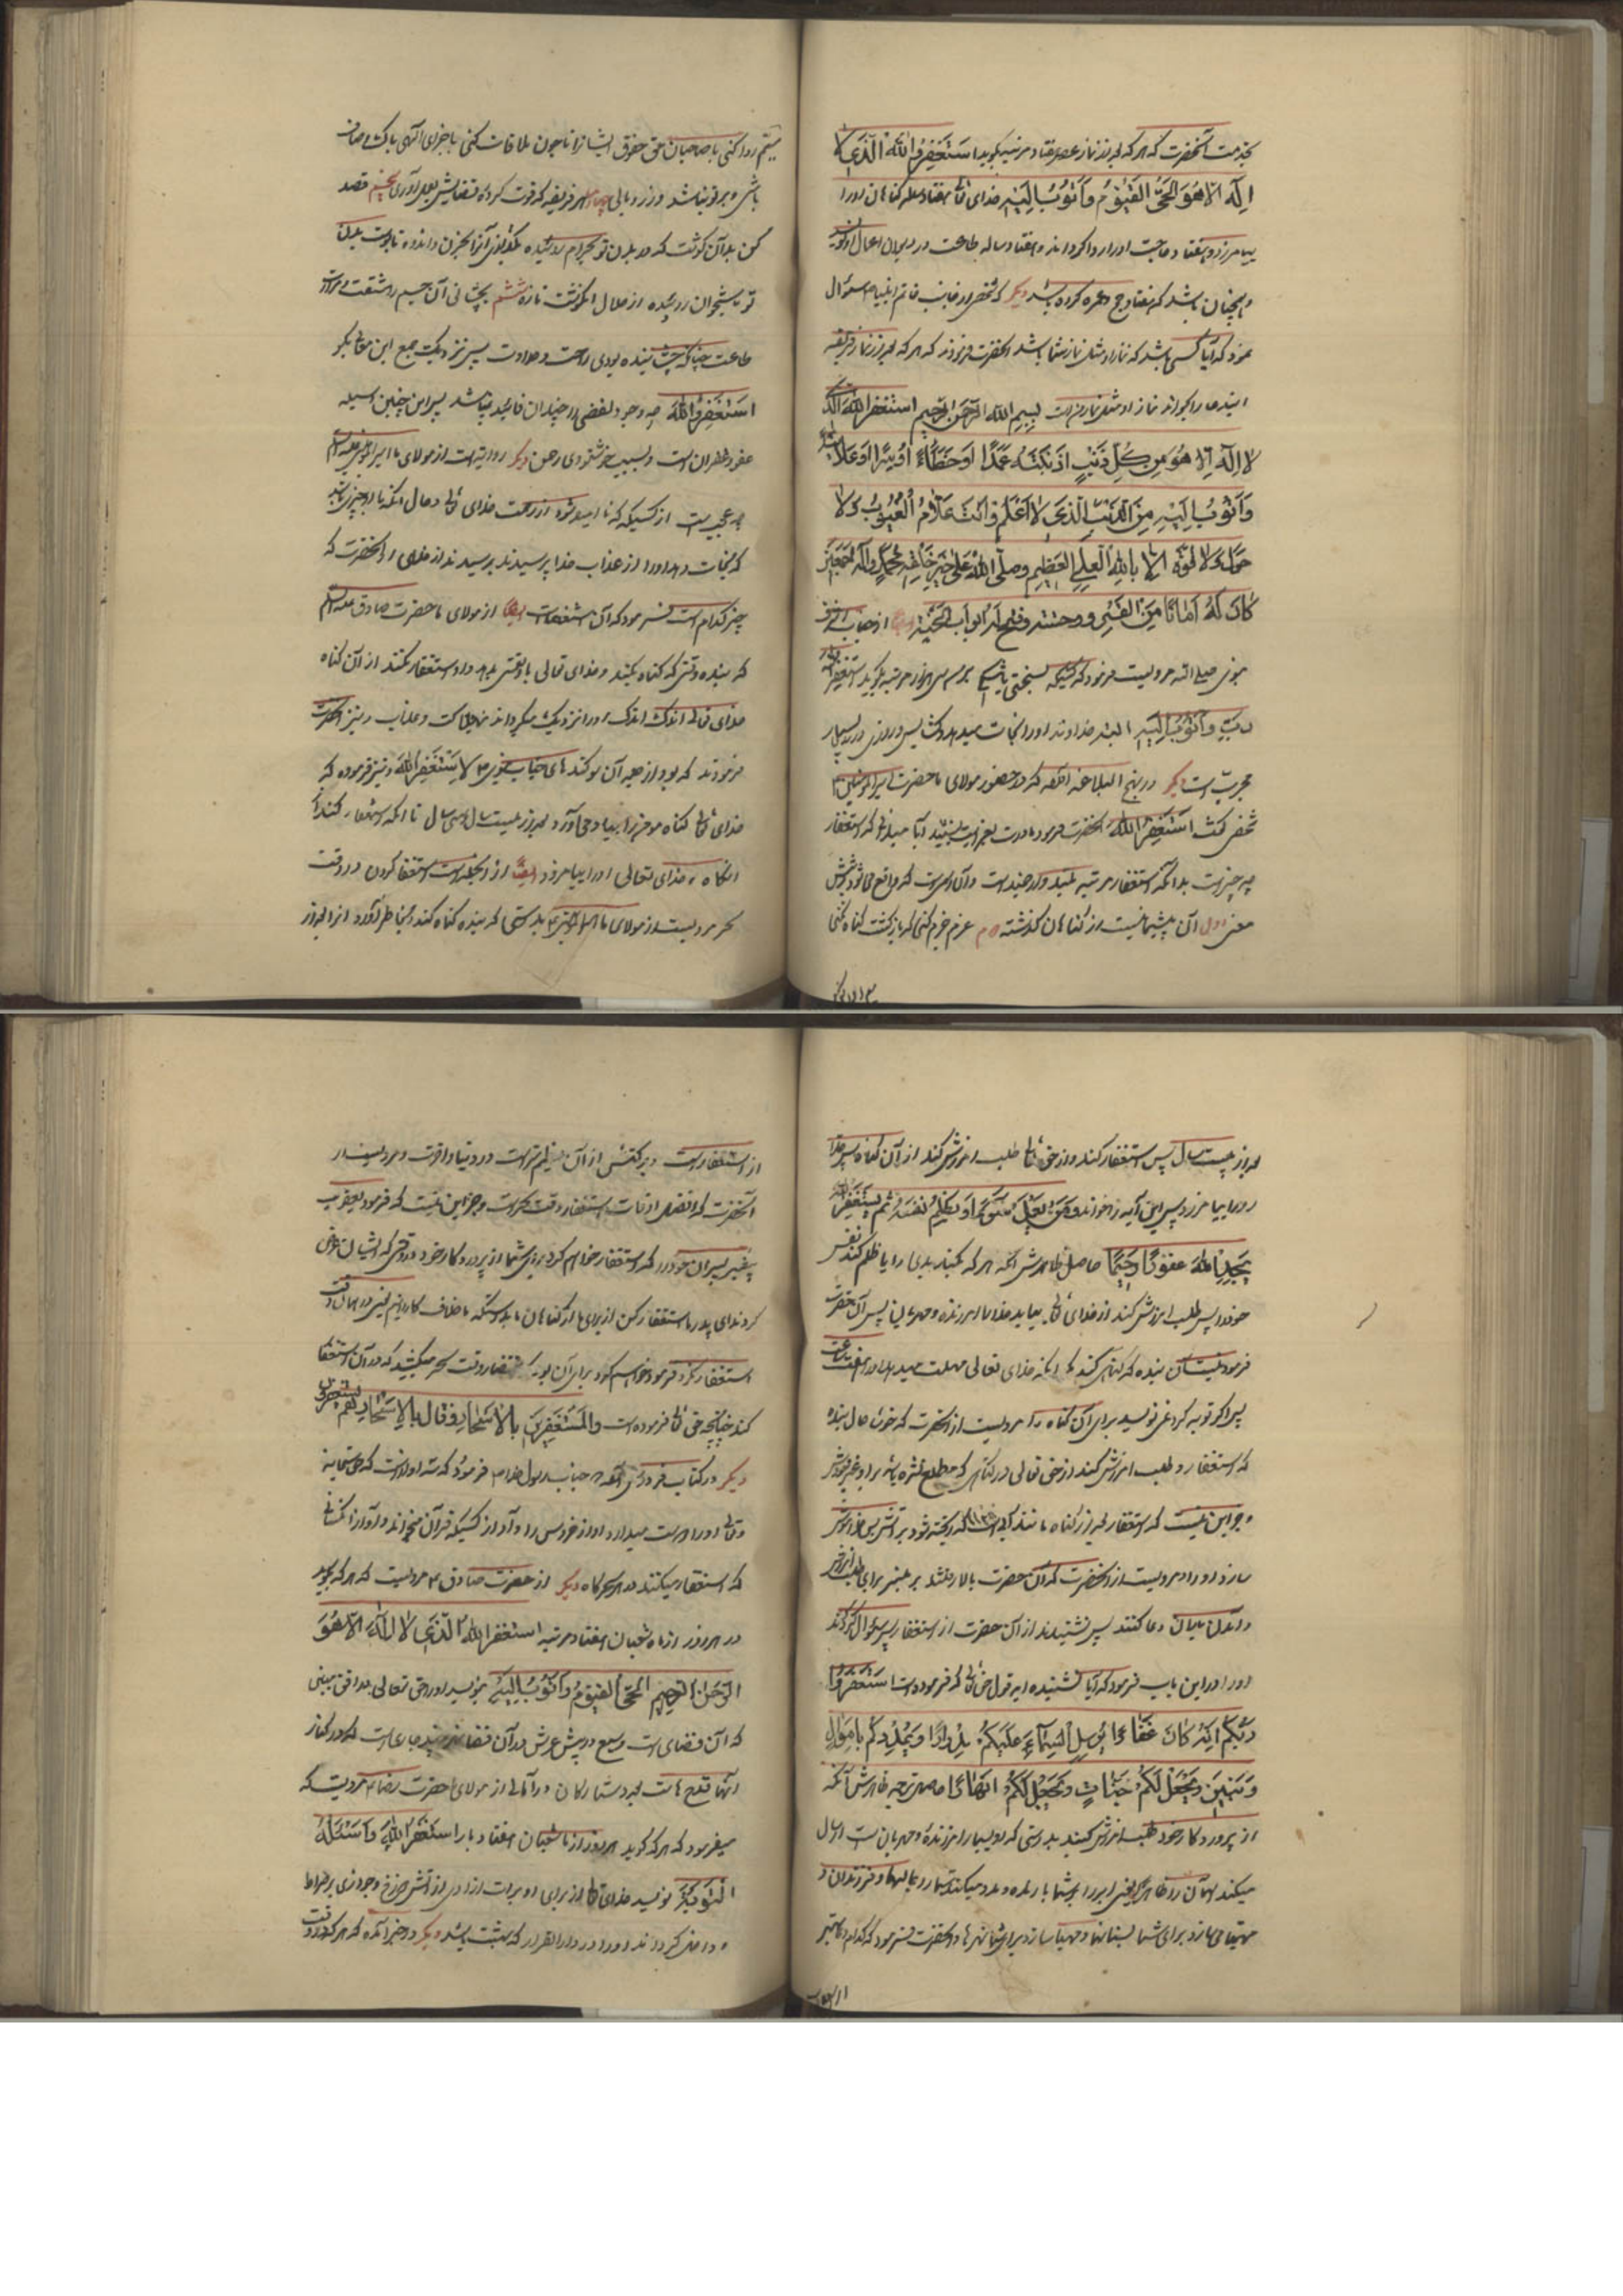 بخدمت آنحضرت که هر که بعد از نماز عصر هفتاد مرتبه بگوید استغفر الله الذی لا
اِله الا هو الحیّ القیّوم و اتوب الیه خدای تعالی هفتاد گناهان او را
بیامرزد و هفتاد حاجت او را روا گرداند و هفتاد ساله طاعت در دیوان اعمال او
و همچنان باشد که هفتاد حج و عمره کرده باشد دیگر که شخصی از جناب خاتم انبیا سئوال
نمود که آیا کسی باشد که نماز او مثل نماز شما باشد آنحضرت فرمودند که هر که بعد از نماز فریضه
این دعا را بخواند نماز او مثل نماز من است بسم الله الرحمن الرحیم استغفر الله الذی
لا اله الا هو من کل ذنب اذنبته عمدًا او خطاءً او سرًّا او علانیة
و اتوب الیه من الذنب الذی لا اعلم و انت علام الغیوب و لا
حول و لا قوة الا بالله العلی العظیم و صلی الله علی خیر خلقه محمد و آله اجمعین
کان له امانا من الفقر و وحشته و فتح له ابواب الجنة ایضا از جناب
مرویست فرمود که کسیکه بسختی باشد هزار مرتبه بگوید استغفر الله
ربی و اتوب الیه البته خداوند او را نجات میدهد و گشایش و روزی
مجربست دیگر در نهج البلاغه که در حضور مولای ما حضرت امیر المومنین
شخصی گفت استغفر الله آنحضرت فرمود مادرت بعزایت بنشیند آیا میدانی که استغفار
چه چیز است بدانکه استغفار مرتبه بلند است و آن اسمی است که واقع میشود بر شش
معنی اول آن پشیمانیست از گناهان گذشته دوم عزم جزم کنی که بازگشت گناه نکنی
سیم ادا کنی با صاحبان حق حقوق ایشانرا تا چون ملاقات کنی با خدای الهی پاک و صاف
باشی و بر تو نباشد وزر و وبالی چهارم هر فریضه که فوت کرده قضایش بعمل آوری پنجم قصد
کن بدان گوشت که در بدن تو بحرام روئیده بگدازی آنرا بحزن و اندوه تا پوست بدن
تو باستخوان رسیده از حلال گوشت تازه ششم بچشانی آن جسم را مشقت
طاعت چنانکه چشانیده بودی راحت و حلاوت پس نزد یکیت جمع این معانی بگو
استغفر الله چه وجود لفظی را چندان فائده نباشد پس این چنین وسیله
عفو و غفرانست و بسبب خوشنودی رحمن دیگر روایتست از مولای ما امیر المؤمنین علیه السلام
چه عجب است از کسیکه نا امید شود از رحمت خدای تعالی و حال آنکه با او چیزی باشد
که نجات دهد او را از عذاب خدا پرسیدند از آنحضرت که
چیز کدام است فرمود که آن استغفار است ایضا از مولای ما حضرت صادق علیه السلام
که بنده وقتی که گناه بکند و خدای تعالی با و نعمتی بدهد و او استغفار نکند از آن گناه
خدای تعالی اندک اندک او را نزدیک میگرداند بهلاکت و عذاب و نیز آنحضرت
فرمودند که بود از سوگندهای جناب نبوی لا و استغفر الله و نیز فرموده که
خدای تعالی گناه مؤمن را بیاد می آورد بعد از بیست سال سی سال تا آنکه استغفار کند از
آنگناه و خدای تعالی او را بیامرزد ایضا از آنجمله است استغفار کردن در وقت
سحر مرویست از مولای ما امیر المؤمنین بدرستی که بنده گناه کند و بخاطر آورد آنرا بعد از
بعد از چهل سال پس استغفار کند و از حق تعالی طلب آمرزش کند از آن گناه پس خدا
او را بیامرزد پس این آیه را خواند و من یعمل سوءًا او یظلم نفسه ثم یستغفر الله
یجد الله غفورًا رحیمًا حاصل ظاهرش آنکه هر که بکند بدی را یا ظلم کند نفس
خود را پس طلب آمرزش کند از خدای تعالی بیابد خدا را آمرزنده و مهربان پس آن حضرت
فرمود نیست آن بنده که گناهی کند مگر آنکه خدای تعالی مهلت میدهد او را هفت ساعت
پس اگر توبه کرد نمی نویسد برای آن گناه را مرویست از آنحضرت که خوشا حال بنده
که استغفار و طلب آمرزش کند از حق تعالی در گناهی که مطلع نشده باشد بر او غیر خدا
و جز این نیست که استغفار بعد از گناه مانند آبی است که ریخته شود بر آتش پس خاموش
سازد او را و مرویست از آنحضرت که آن حضرت بالا رفتند بر منبر برای طلب
و اندک دعا کنند پس نشنیدند از آن حضرت از استغفار پس سئوال کردند
او را در این باب فرمود که آیا نشنیده اید قول حق تعالی که فرموده است استغفروا
ربکم انه کان غفارًا یرسل السماء علیکم مدرارًا و یمددکم باموال
و بنین و یجعل لکم جنات و یجعل لکم انهارًا حاصل ترجمه ظاهرش آنکه
از پروردگار خود طلب آمرزش کنید بدرستی که او بسیار آمرزنده و مهربان است ارسال
میکند آسمان را یعنی ابر را بر شما بارنده و مدد میکند شما را بمالها و فرزندان و
مهیا میسازد برای شما بستانها و مهیا سازد برای شما نهرها و آنحضرت فرمود که کدام دعا بهتر
از استغفار است و برکتش از آن عظیم تر است در دنیا و آخرت و مرویست از
آنحضرت که افضل اوقات استغفار وقت سحر است و جز این نیست که فرمود یعقوب
پیغمبر پسران خود را که استغفار خواهم کرد برای شما از پروردگار خود در وقتی که ایشان عرض
کردند ای پدر ما استغفار کن از برای ما از گناهان ما بدرستیکه ما خلاف کارانیم یعنی در همان وقت
استغفار نکرد فرمود خواهم کرد برای آن بود که انتظار وقت سحر میکشید که در آن استغفار
کند چنانچه حق تعالی فرموده است و المستغفرین بالاسحار و قال و بالاسحار هم یستغفرون
دیگر در کتاب فردوس که جناب رسول خدا فرمود که سه آواز است که حق سبحانه
و تعالی او را دوست میدارد آواز خروس را و آواز کسیکه قرآن میخواند و آواز آنکسانی
که استغفار میکنند در سحرگاه دیگر از حضرت صادق مرویست که هر که بگوید
در هر روز از ماه شعبان هفتاد مرتبه استغفر الله الذی لا اله الا هو
الرحمن الرحیم الحی القیوم و اتوب الیه بنویسد او را حق تعالی در افق مبین
که آن فضای است وسیع در پیش عرش در آن فضا نهری چند جاریست که در کنار
آنها قدح هاست بعدد ستارگان در امالی از مولای ما حضرت رضا مرویست که
میفرمود که هر که گوید هر روز از ماه شعبان هفتاد بار استغفر الله و اسئله
التوبة بنویسد خدای تعالی از برای او برات آزادی از آتش دوزخ و جوازی بر صراط
و داخل گرداند او را در دار القرار که بهشت باشد دیگر در خبر آمده که هر که در وقت